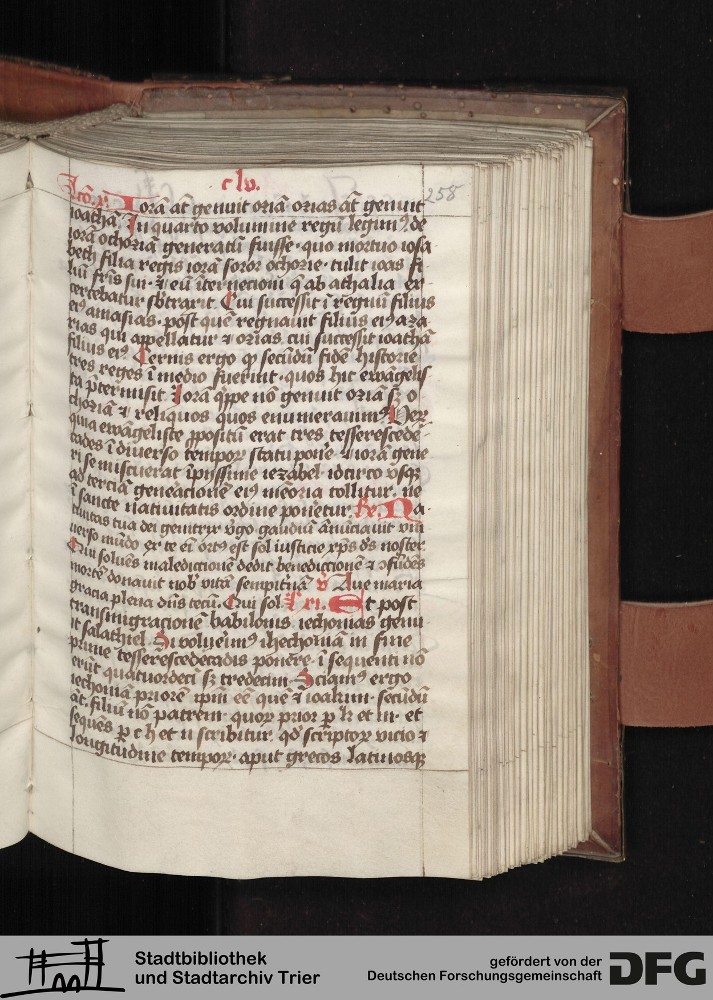 clv.
258
Lcō. x. Iorā aūt genuit oziā ozias aūt genuit
ioathā. In quarto volumine regū legimꝰ de
iorā ochoziā generatū fuisse · quo mortuo iosa
beth filia regis iorā soror ochozie · tulit ioas fi
liū fr̄is sui · ⁊ eū īternecioni q̄ ab athalia ex
ercebatur sb̄traxit. Cui successit ī regnū filius
eiꝰ amasias · post quē regnauit filius eiꝰ aza
rias qui appellatur ⁊ ozias cui successit ioathā
filius eiꝰ Cernis ergo ꝙ secūdū fidē historie
tres reges ī medio fuerint · quos hic ewāgelis
ta p̄termisit. Iorā q̄ppe nō genuit oziā sꝫ o
choziā ⁊ reliquos quos enumerauimꝰ Verꝝ
quia ewāgeliste ꝓpositū erat tres tesserescede
cades ī diuerso temporꝝ statu pone · ⁊ iorā gene
ri se miscuerat īpijssime iezabel idcirco vsqꝫ
ad terciā generacionē eiꝰ mēoria tollitur · ne
ī sancte natiuitatis ordine poneretur. Re Na
tiuitas tua dei genitrix v̄go gaudiū ānūciauit vni
uerso mūdo Ex te eī ortꝰ est sol iusticie xp̄s dꝰs noster
Qui soluēs maledictionē dedit benedictionē ⁊ ɔfūdēs
mortē donauit nob̄ vitā sempit̄nā V̄ Aue maria
gracia plena dn̄s tecū. Qui sol. L xi. Et post
transmigracionē babilonis iechonias genu
it salathiel Si voluerimꝰ iechoniā in fine
prime tesserescedecadis ponere · ī sequenti nō
erūt quatuordecī sꝫ tredecim. Sciamꝰ ergo
iechoniā priorē ip̄m eē quē ⁊ ioakim · secūdū
aūt filiū nō patrem · quorꝝ prior ꝑ k et m · et
sequēs ꝑ c h et n scribitur qd̄ scriptorꝝ vicio ⁊
longitudine temporꝝ · aput grecos latinosqꝫ
Stadtbibliothek
und Stadtarchiv Trier
gefördert von der
Deutschen Forschungsgemeinschaft
DFG